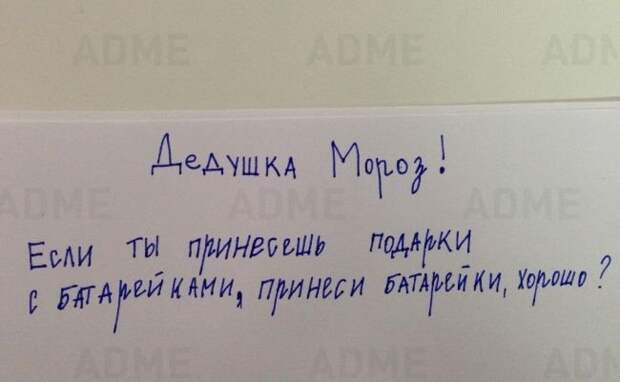 ADME ADME ADME
Дедушка Мороз!
ADME ADME ADME
Если ты принесешь подарки
с батарейками, принеси батарейки, хорошо?
ADME ADME ADME